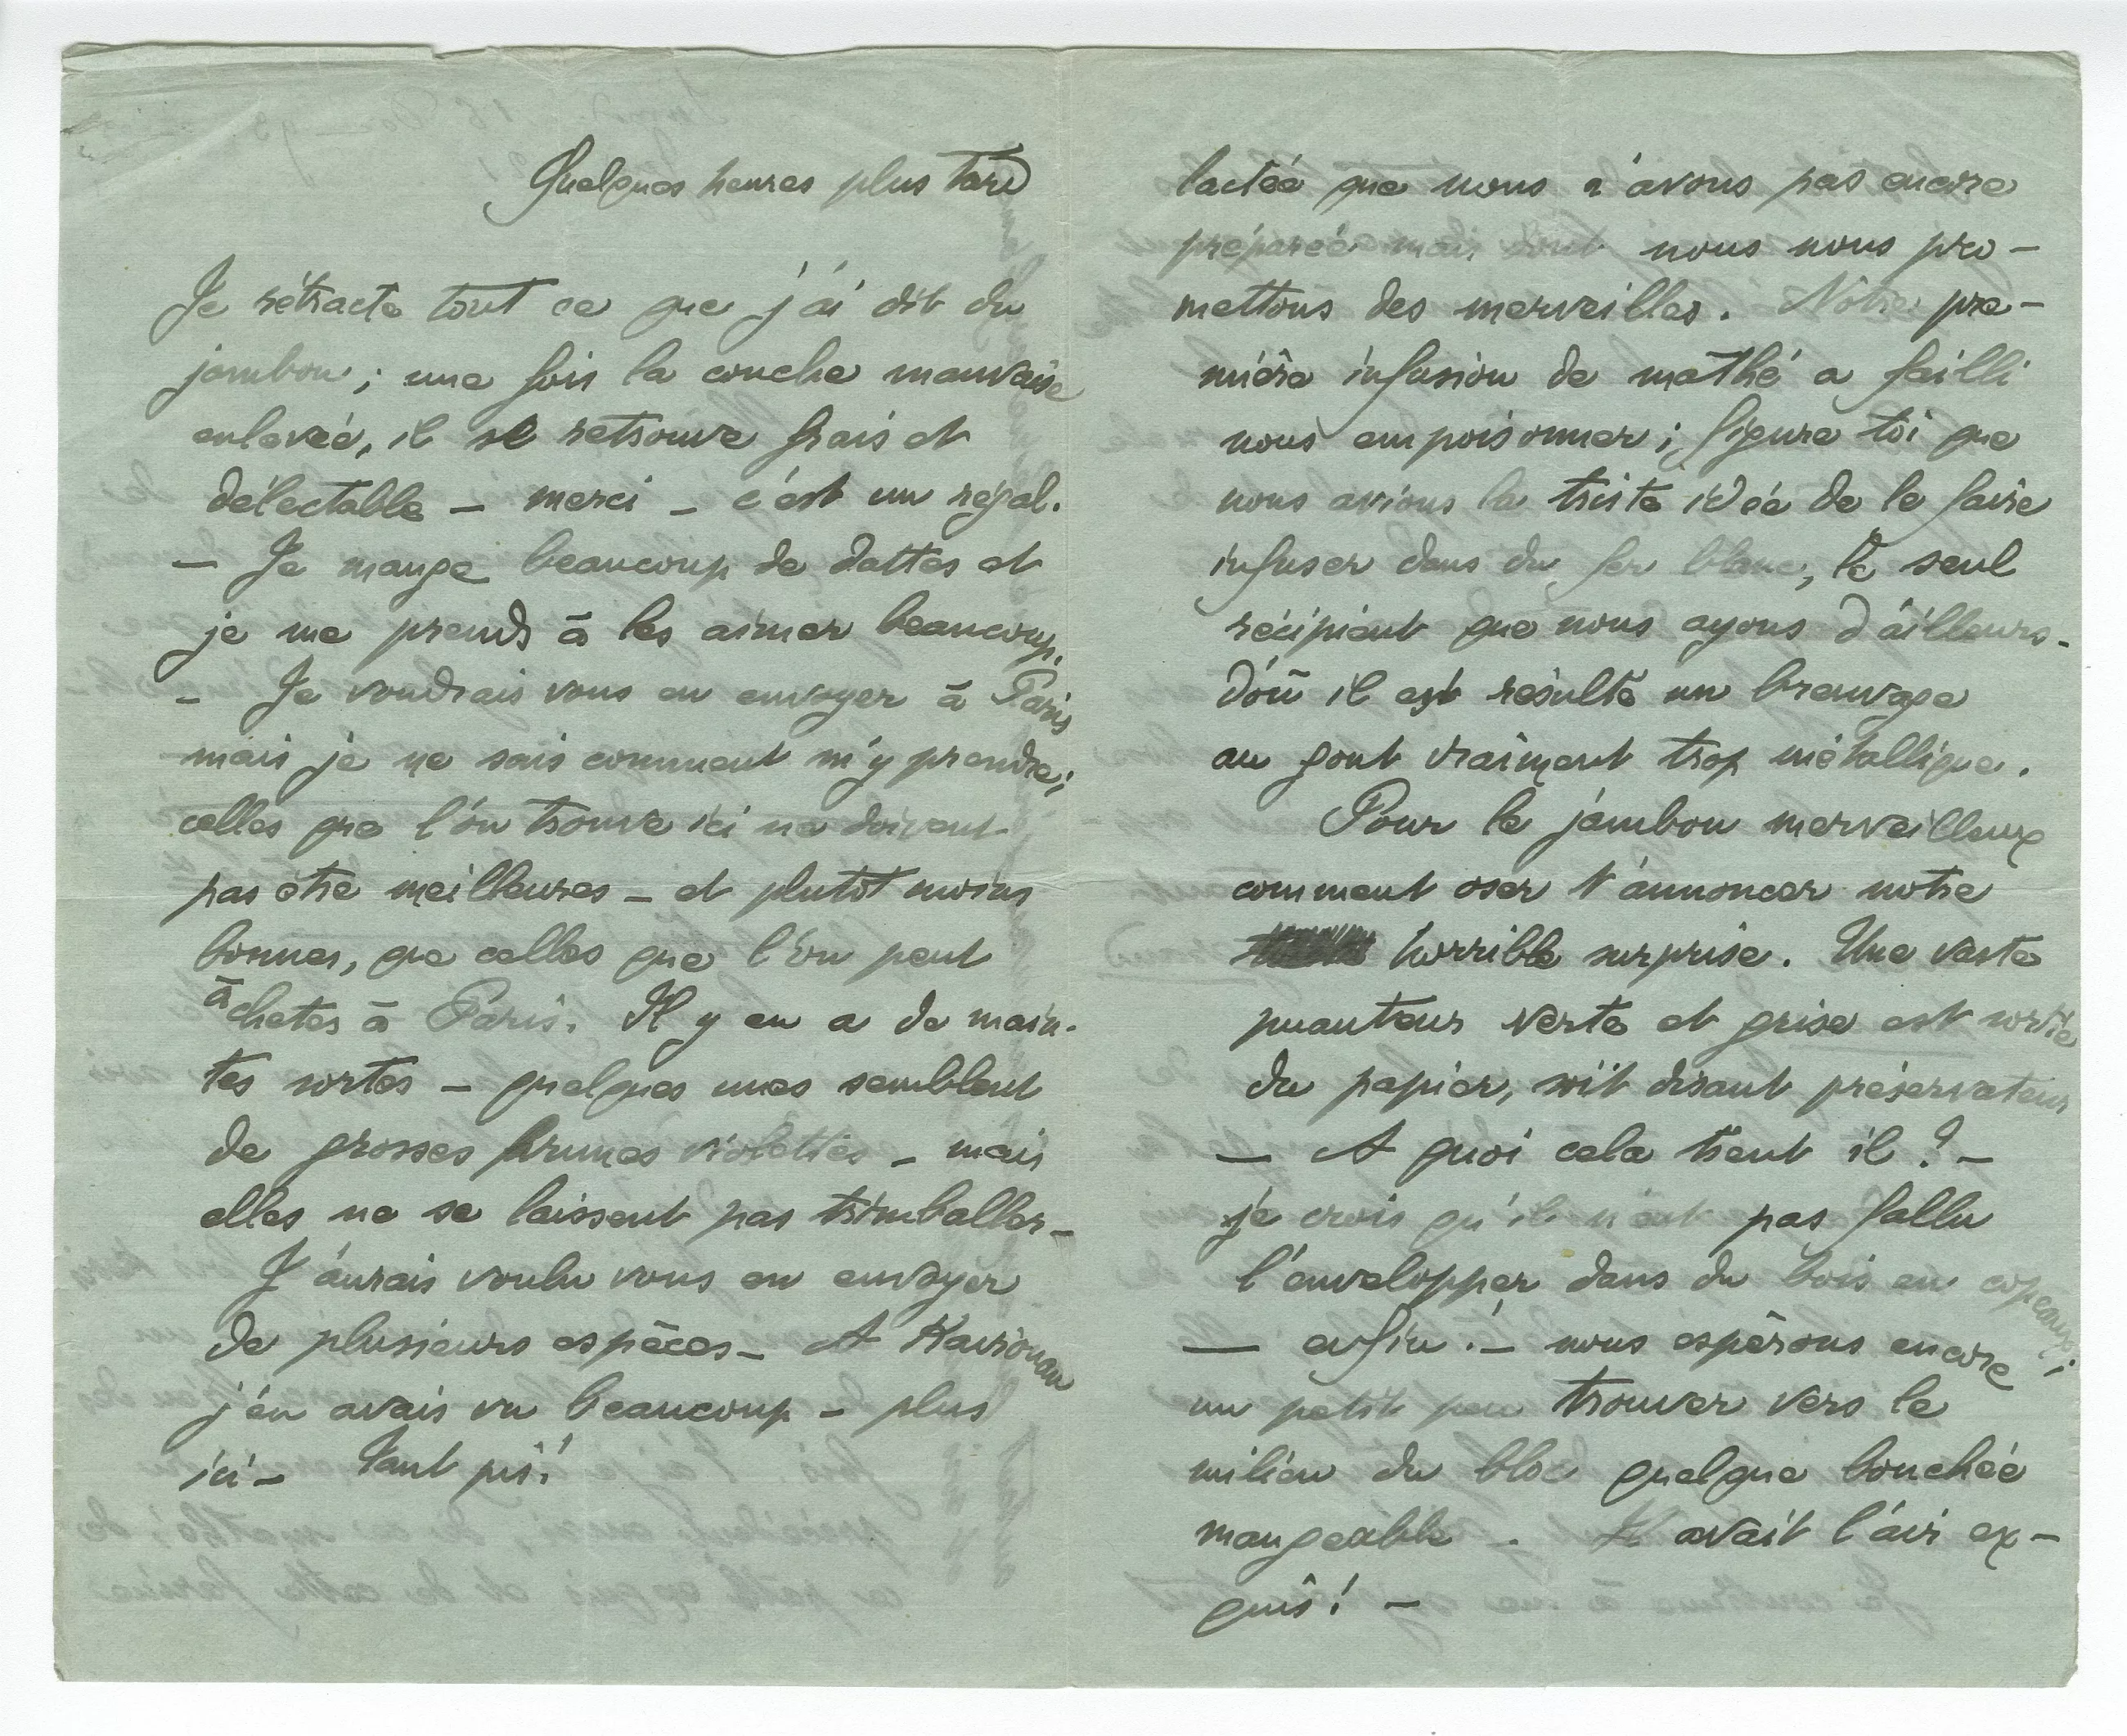 Quelques heures plus tard
Je rétracte tout ce que j'ai dit du
jambon ; une fois la couche mauvaise
enlevée, il se retrouve frais et
délectable – merci – c'est un régal.
– Je mange beaucoup de dattes et
je me prends à les aimer beaucoup.
– Je voudrais vous en envoyer à Paris
mais je ne sais comment m'y prendre ;
celles que l'on trouve ici ne doivent
pas être meilleures – et plutôt moins
bonnes, que celles que l'on peut
acheter à Paris. Il y en a de main-
tes sortes – quelques unes semblent
de grosses prunes violettes – mais
elles ne se laissent pas trimballer –
J'aurais voulu vous en envoyer
de plusieurs espèces – A Kairouan
j'en avais vu beaucoup – plus
ici – Tant pis !
lactée que nous n'avons pas encore
préparée mais dont nous nous pro –
mettons des merveilles. Notre pre –
mière infusion de mathé a failli
nous empoisonner ; figure toi que
nous avions la triste idée de le faire
infuser dans du fer blanc, le seul
récipient que nous ayons d'ailleurs –
d'où il est résulté un breuvage
au gout vraiment trop métallique.
Pour le jambon merveilleux
comment oser t'annoncer notre
horrible surprise. Une vaste
puanteur verte et grise est sortie
du papier, soit disant préservateur
– A quoi cela tient il ? –
je crois qu'il n'eut pas fallu
l'envelopper dans du bois en copeaux ;
– enfin ! – nous espérons encore
un petit peu trouver vers le
milieu du bloc quelque bouchée
mangeable. Il avait l'air ex –
quis ! –